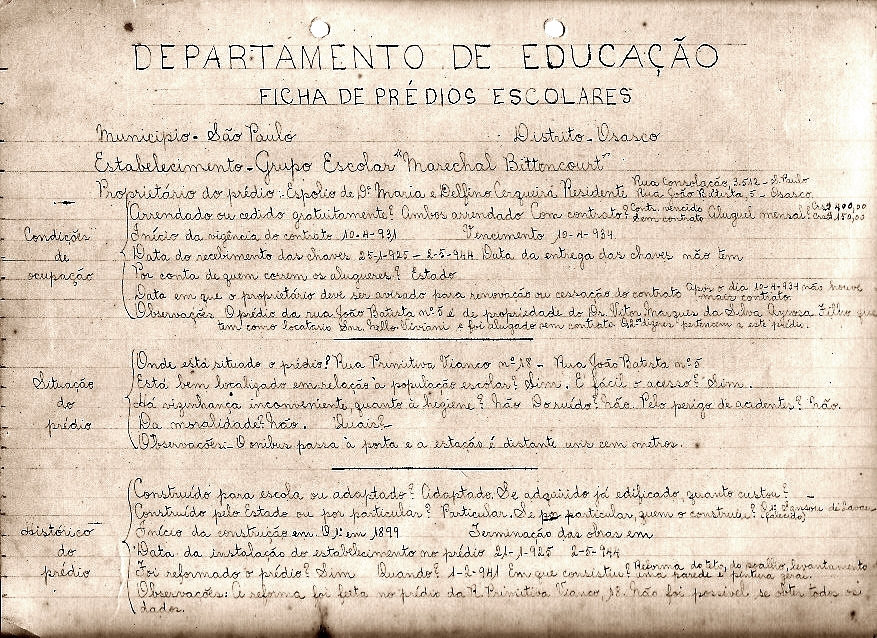 DEPARTAMENTO DE EDUCAÇÃO
FICHA DE PRÉDIOS ESCOLARES
Municipio - São Paulo Distrito - Osasco
Estabelecimento - Grupo Escolar "Marechal Bittencourt"
Proprietário do prédio: Espolio de Dª Maria e Delfino Cerqueira Residente Rua Consolação, 3.512 - S. Paulo Rua João Batista, 5 - Osasco
Condições de ocupação
Arrendado ou cedido gratuitamente? Ambos arrendado Com contrato? Contr. vencido Sem contrato Aluguel mensal? Cr$ 400,00 Cr$ 150,00
Início da vigência do contrato 10-4-931 Vencimento 10-4-934
Data do recebimento das chaves 25-1-925 - 2-5-944 Data da entrega das chaves não tem
Por conta de quem correm os alugueres? Estado
Data em que o proprietário deve ser avisado para renovação ou cessação do contrato Apos o dia 10-4-934 não houve mais contrato
Observações O prédio da rua João Batista nº 5 é de propriedade do Dr. Vitor Marques da Silva Ayrosa Filho que
tem como locatario Snr. Viviani e foi alugado sem contrato pertencem a este prédio.
Situação do prédio
Onde está situado o prédio? Rua Primitiva Vianco nº 18 - Rua João Batista nº 5
Está bem localizado em relação à população escolar? Sim. E fácil o acesso? Sim.
Há vizinhança inconveniente, quanto à higiene? Não Do ruído? Não. Pelo perigo de acidentes? Não.
Da moralidade? Não. Quais? -
Observações: - O onibus passa à porta e a estação é distante uns cem metros.
Histórico do prédio
Construído para escola ou adaptado? Adaptado. Se adquirido já edificado, quanto custou? -
Construído pelo Estado ou por particular? Particular. Se por particular, quem o construiu? (falecido)
Início da construção em: O 1º em 1899 Terminação das obras em
Data da instalação do estabelecimento no prédio 21-1-925 2-5-944
Foi reformado o prédio? Sim Quando? 1-2-941 Em que consistiu? Reforma do teto, do soalho, levantamento uma parede e pintura geral.
Observações: A reforma foi feita no prédio da R. Primitiva Vianco, 18. Não foi possivel se obter todos os
dados.